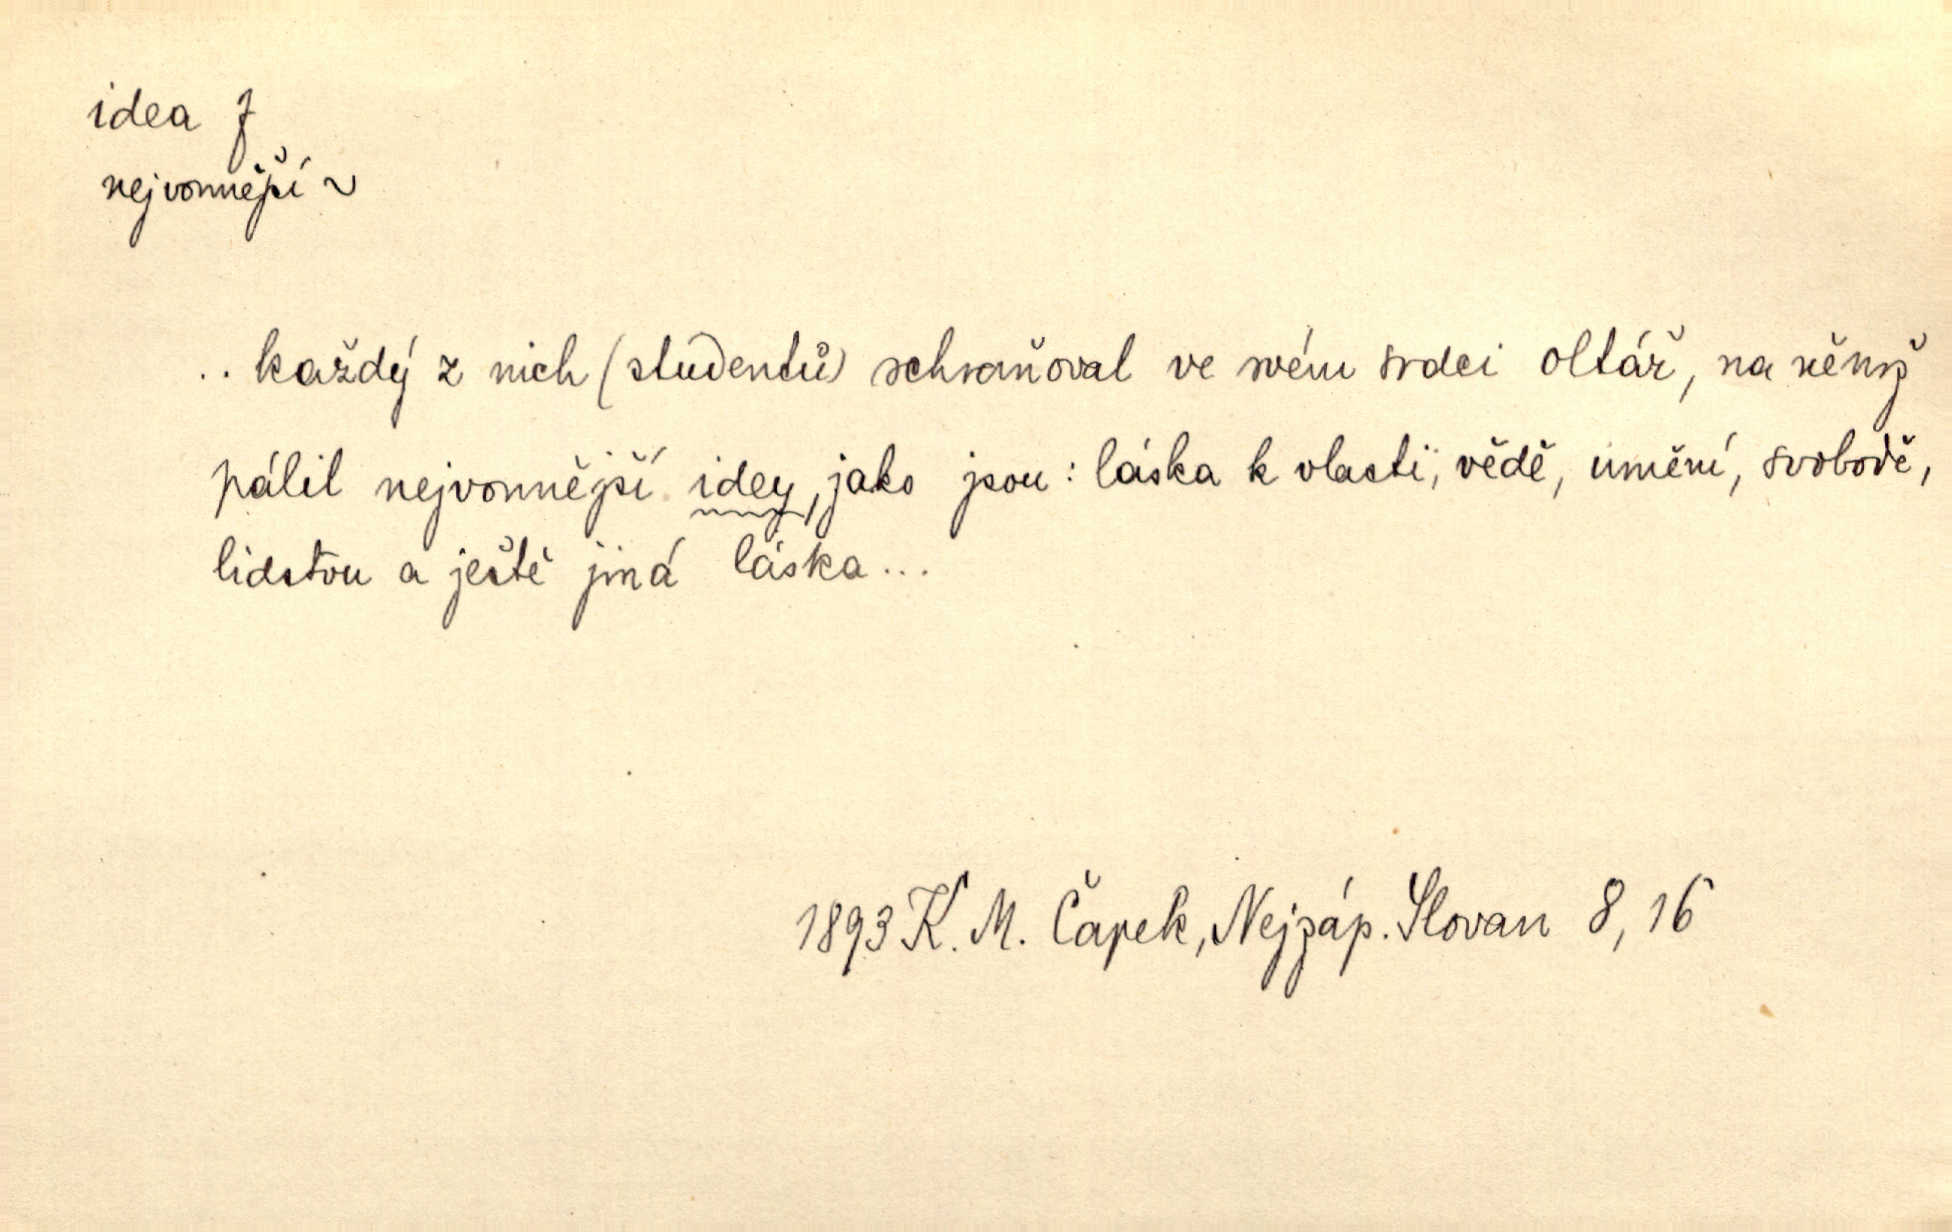 idea f
nejvonnější ~
.. každý z nich (studentů) schraňoval ve svém srdci oltář, na němž
pálil nejvonnější idey, jako jsou: láska k vlasti, vědě, umění, svobodě,
lidstvu a ještě jiná láska...
1893 K. M. Čapek, Nejzáp. Slovan 8, 16